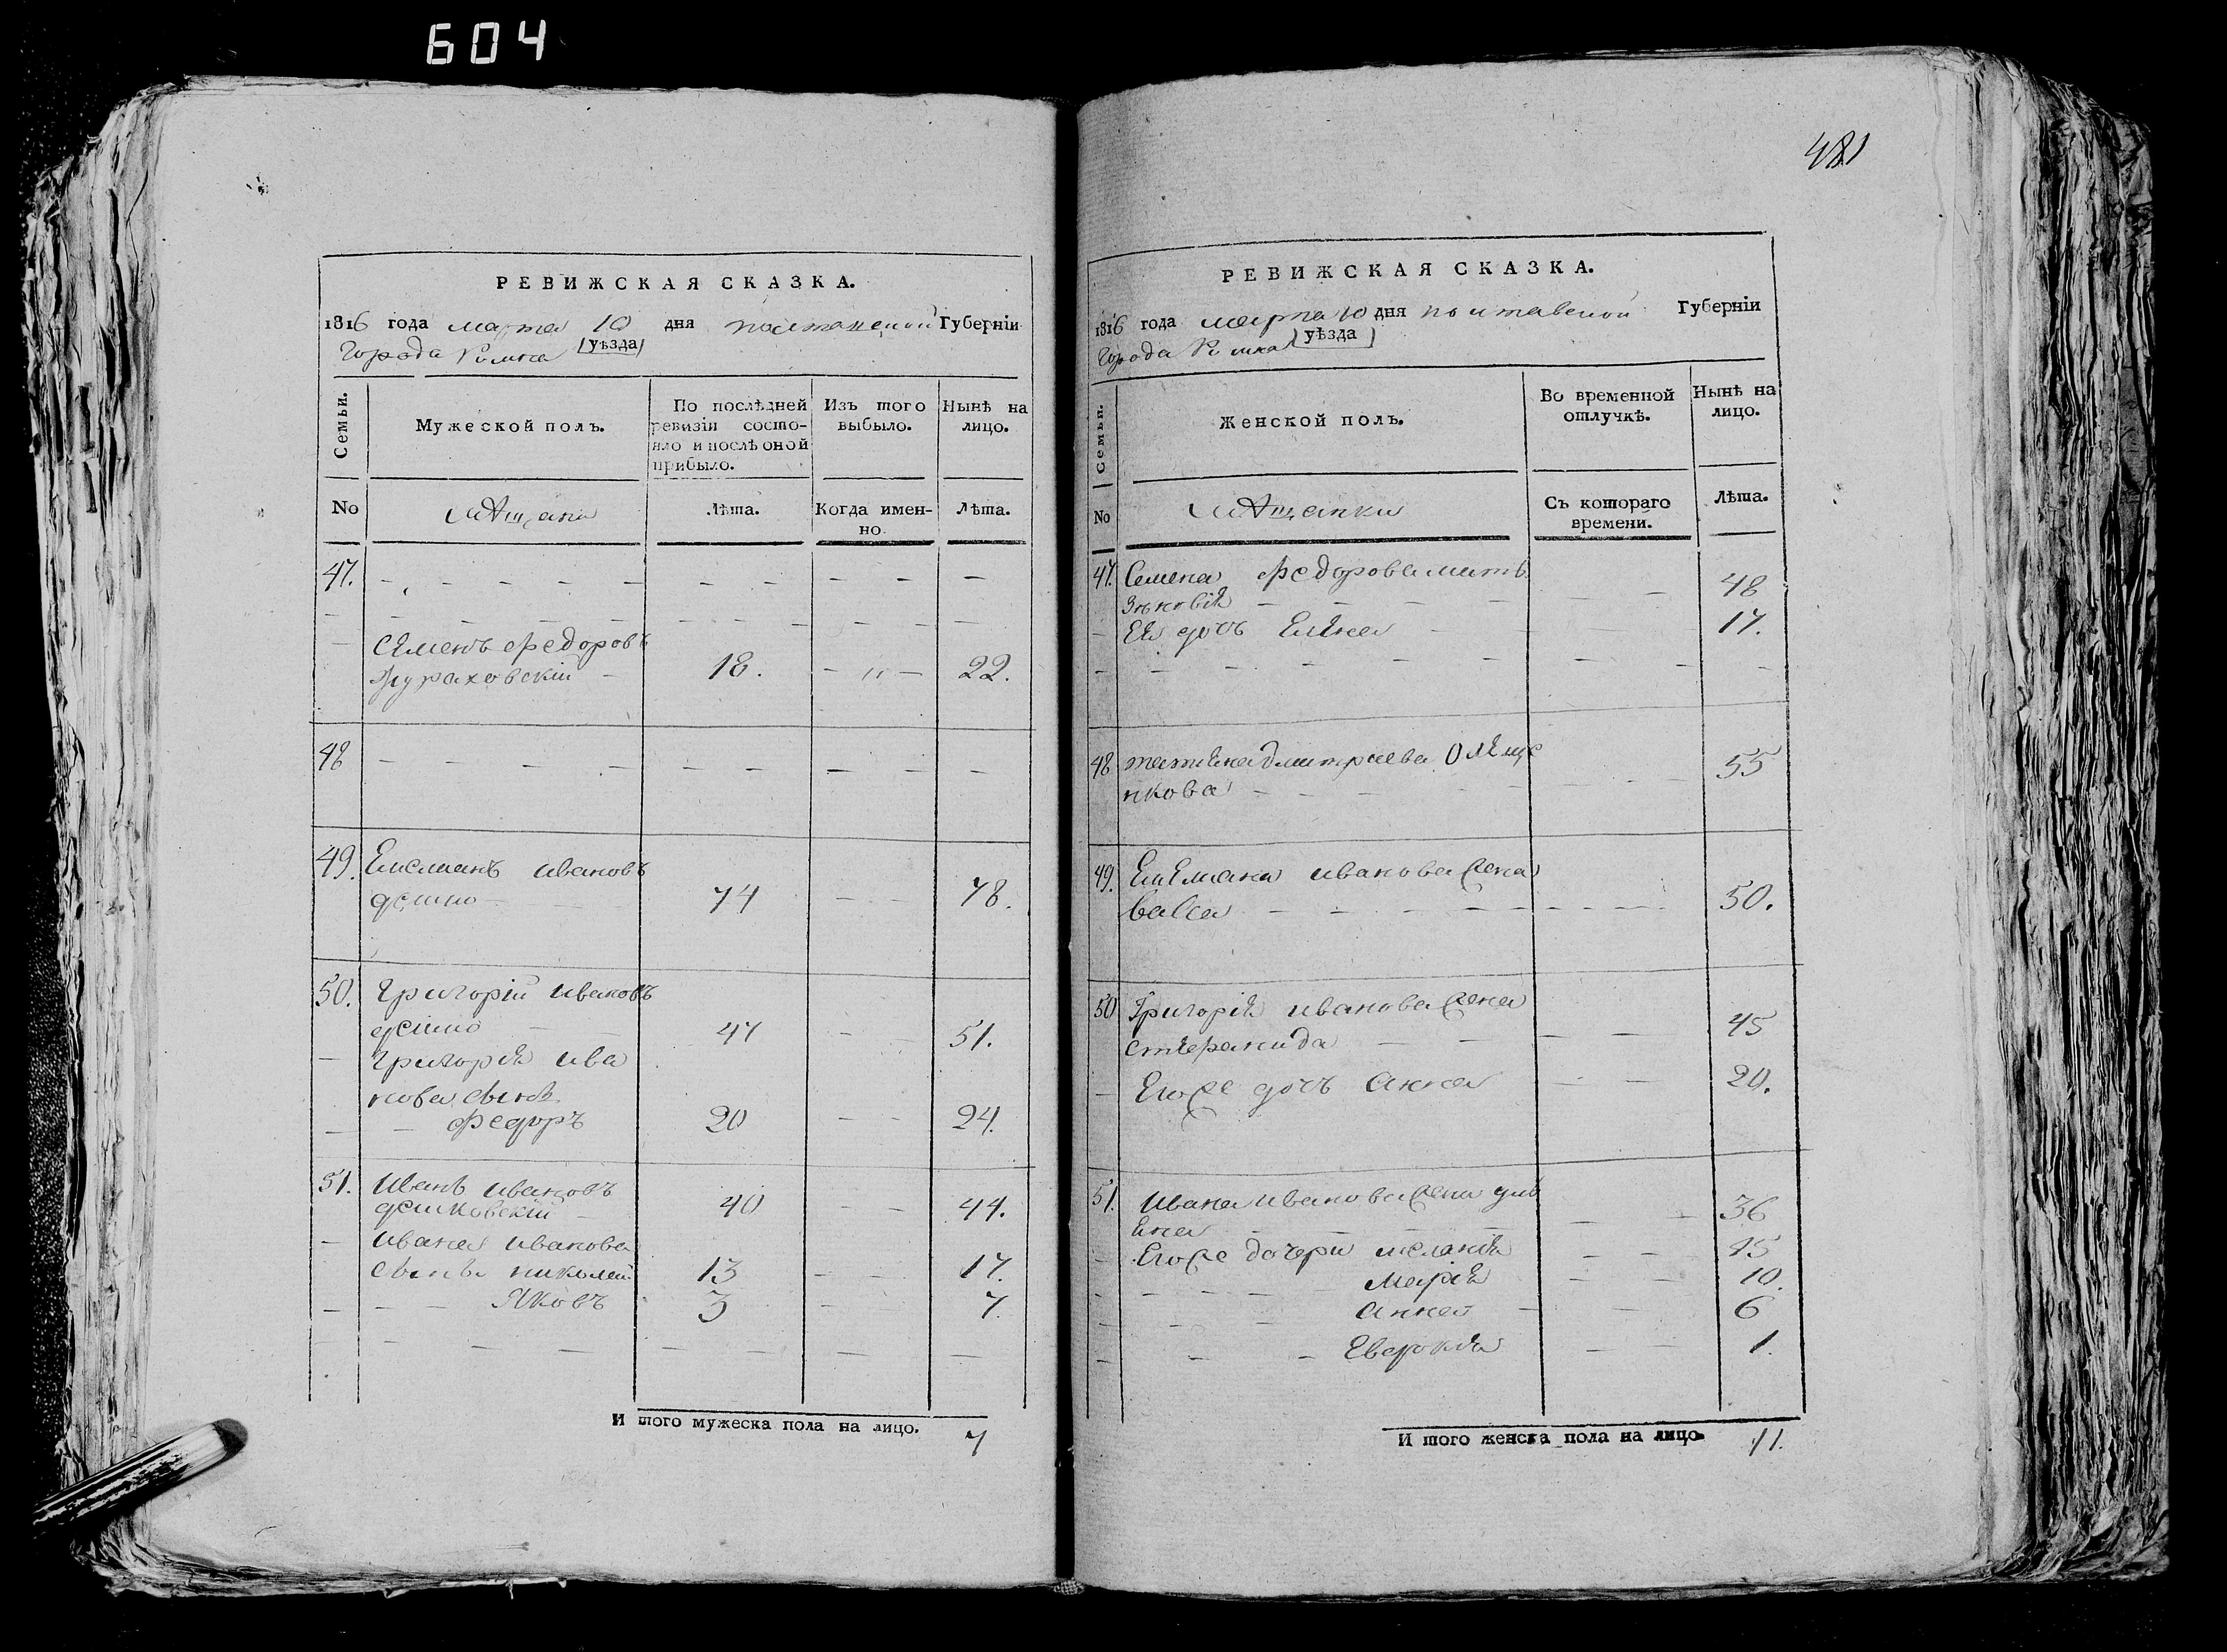 604
481
РЕВИЖСКАЯ СКАЗКА.
1816 года марта 10 дня полтавской Губернїи
города Ромна (уѣзда)
Семьи.
Мужеской полъ.
По послѣдней ревизїи состояло и послѣ оной прибыло.
Изъ того выбыло.
Нынѣ на лицо.
No
мѣщани
Лѣта.
Когда именно.
Лѣта.
47.
Семенъ Федоровъ
18. 22.
48
49. Емелианъ ивановъ
74 78.
50. Григорїй ивановъ
47 51.
Григорїя ива
нова сынъ
Федоръ 20 24.
51. Иванъ ивановъ
40 44.
Ивана иванова
сынъ николай 13 17.
Яковъ 3 7.
И того мужеска пола на лицо. 7
РЕВИЖСКАЯ СКАЗКА.
1816 года марта 10 дня полтавской Губернїи
Города Ромна (уѣзда)
Семьи.
Женской полъ.
Во временной отлучкѣ.
Нынѣ на лицо.
No
мѣщанки
Съ котораго времени.
Лѣта.
47. Семена Федорова мать
Зѣновїя 48
Ея дочь Елена 17.
48 татияна дмитриева Олеще
нкова 55
49. Емелиана иванова жена
50.
50 Григорїя иванова жена
45
Егоже дочь Анна 20.
51. Ивана иванова жена улі
яна 36
Егоже дочери меланїя 15
Марїя 10.
Анна 6
Евдокия 1.
И того женска пола на лицо 11.